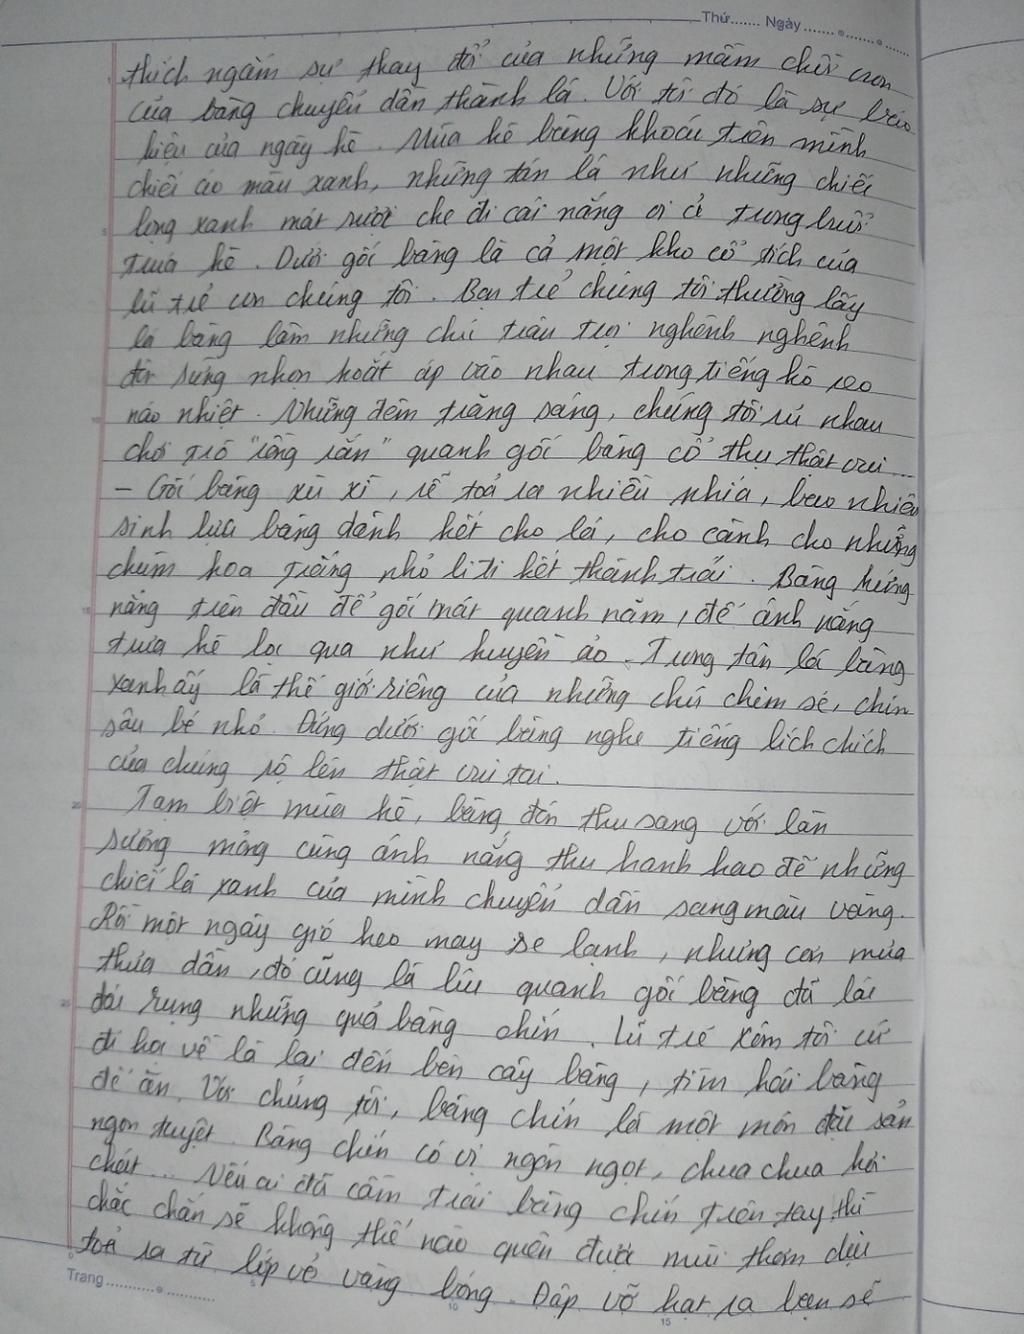 Thứ....... Ngày ....................
thích ngắm sự thay đổi của những mầm chồi non
của bàng chuyển dần thành lá. Với tôi đó là sự báo
hiệu của ngày hè. Mùa hè bàng khoác trên mình
chiếc áo màu xanh, những tán lá như những chiếc
lọng xanh mát rượi che đi cái nắng oi ả trong buổi
trưa hè. Dưới gốc bàng là cả một kho cổ tích của
lũ trẻ con chúng tôi. Bọn trẻ chúng tôi thường lấy
lá bàng làm những chú trâu trọi nghênh nghênh
đôi sừng nhọn hoắt áp vào nhau trong tiếng hò reo
náo nhiệt. Những đêm trăng sáng, chúng tôi rủ nhau
chơi trò "rồng rắn" quanh gốc bàng cổ thụ thật vui...
- Gốc bàng xù xì, rễ toả ra nhiều phía, bao nhiêu
sinh lực bàng dành hết cho lá, cho cành cho những
chùm hoa trắng nhỏ li ti kết thành trái. Bàng hứng
nắng trên đầu để gốc mát quanh năm, để ánh nắng
trưa hè lọc qua như huyền ảo. Trong tán lá bàng
xanh ấy là thế giới riêng của những chú chim sẻ, chim
sâu bé nhỏ. Đứng dưới gốc bàng nghe tiếng lích chích
của chúng rộ lên thật vui tai.
Tạm biệt mùa hè, bàng đón thu sang với làn
sương mỏng cùng ánh nắng thu hanh hao để những
chiếc lá xanh của mình chuyển dần sang màu vàng.
Rồi một ngày gió heo may se lạnh, những cơn mưa
thưa dần, đó cũng là lúc quanh gốc bàng đã lác
đác rụng những quả bàng chín. Lũ trẻ xóm tôi cứ
đi học về là lại đến bên cây bàng, tìm hái bàng
để ăn. Với chúng tôi, bàng chín là một món đặc sản
ngon tuyệt. Bàng chín có vị ngòn ngọt, chua chua hơi
chát... Nếu ai đã cầm trái bàng chín trên tay thì
chắc chắn sẽ không thể nào quên được mùi thơm dịu
toả ra từ lớp vỏ vàng bóng. Đập vỡ hạt ra bạn sẽ
Trang...............